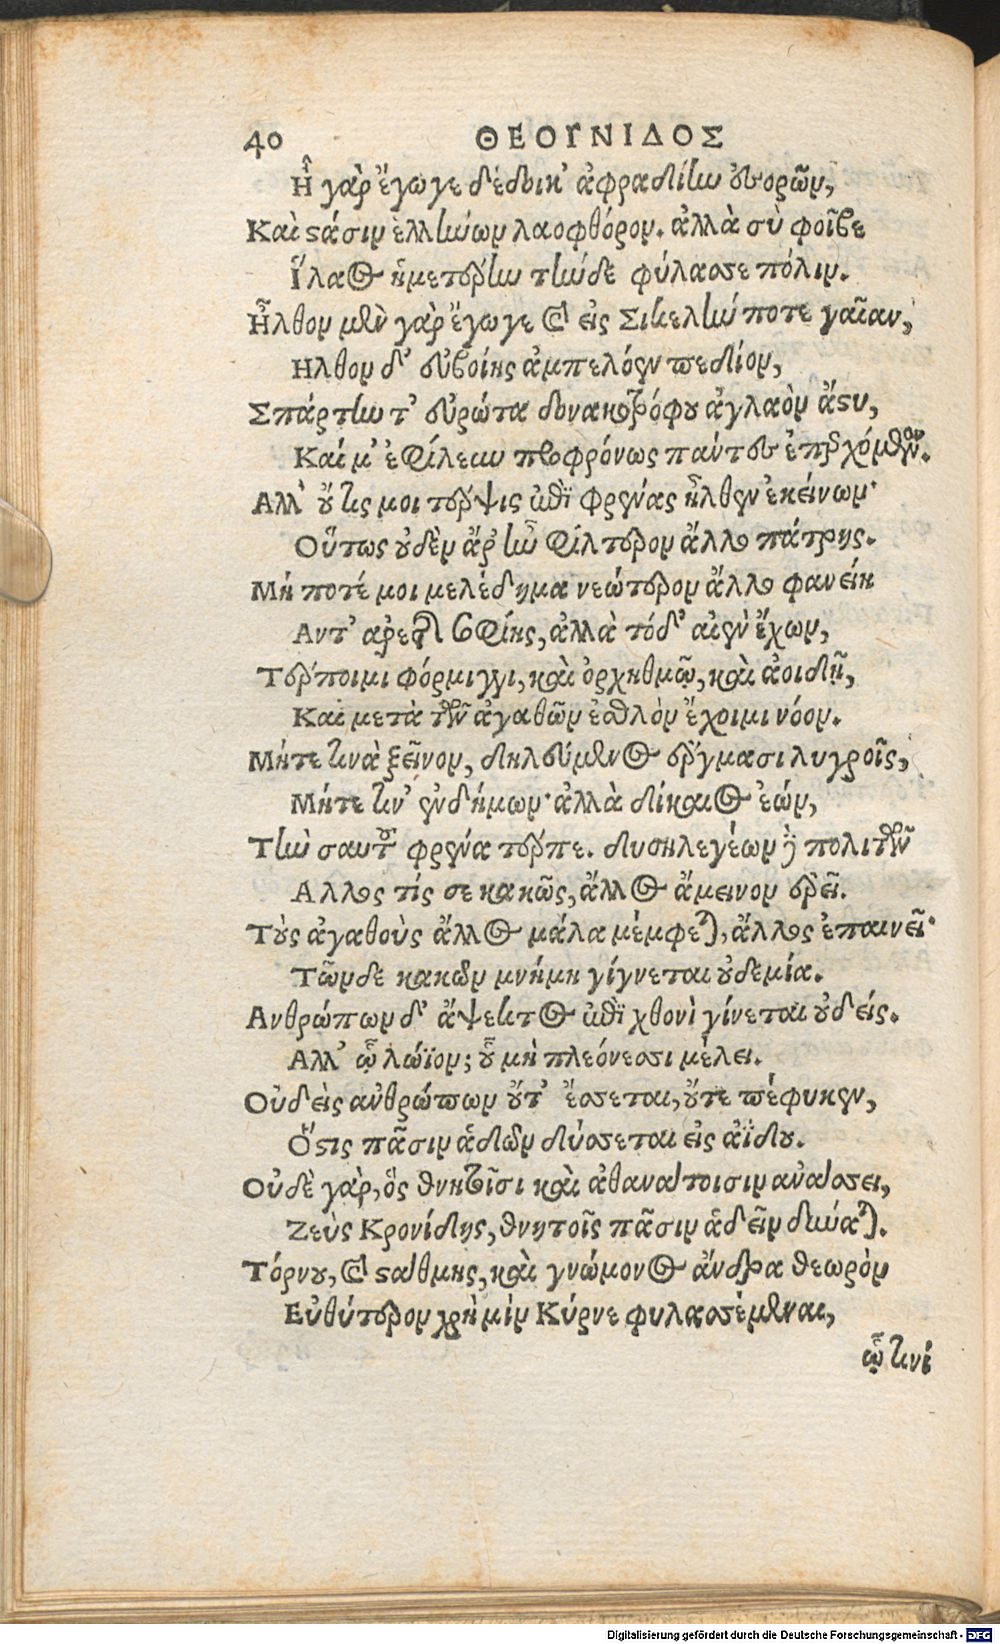 40 ΘΕΟΓΝΙΔΟΣ
Ἦ γὰρ ἔγωγε δέδοικ' ἀφραδίην ἐσορῶν,
Καὶ στάσιν ἑλλήνων λαοφθόρον. ἀλλὰ σὺ φοῖβε
Ἵλαος ἡμετέρην τήνδε φύλασσε πόλιν.
Ἦλθον μὲν γὰρ ἔγωγε καὶ εἰς Σικελήν ποτε γαῖαν,
Ηλθον δ' εὐβοίης ἀμπελόεν πεδίον,
Σπάρτην τ' εὐρώτα δονακοτρόφου ἀγλαὸν ἄστυ,
Καί μ' ἐφίλευν προφρόνως πάντες ἐπερχόμενον.
Αλλ' οὔτις μοι τέρψις ἐπὶ φρένας ἦλθεν ἐκείνων·
Οὕτως οὐδὲν ἄρ' ἦν φίλτερον ἄλλο πάτρης.
Μή ποτέ μοι μελέδημα νεώτερον ἄλλο φανείη
Αντ' ἀρετῆς σοφίης, ἀλλὰ τόδ' αἰὲν ἔχων,
Τερποίμι φόρμιγγι, καὶ ὀρχηθμῷ, καὶ ἀοιδῇ,
Καὶ μετὰ τῶν ἀγαθῶν ἐσθλὸν ἔχοιμι νόον.
Μήτε τινὰ ξεῖνον, δηλεύμενος ἔργμασι λυγροῖς,
Μήτε τιν' ἐνδήμων· ἀλλὰ δίκαιος ἐών,
Τὴν σαυτοῦ φρένα τέρπε. δυσηλεγέων δὲ πολιτῶν
Αλλος τίς σε κακῶς, ἄλλος ἄμεινον ἐρεῖ.
Τοὺς ἀγαθοὺς ἄλλος μάλα μέμφεται, ἄλλος ἐπαινεῖ·
Τῶνδε κακῶν μνήμη γίγνεται οὐδεμία.
Ανθρώπων δ' ἄψεκτος ἐπὶ χθονὶ γίνεται οὐδείς.
Αλλ' ᾧ λώϊον; οὗ μὴ πλεόνεσσι μέλει.
Οὐδεὶς ἀνθρώπων οὔτ' ἔσσεται, οὔτε πέφυκεν,
Ὅστις πᾶσιν ἁδὼν δύσσεται εἰς ἀΐδου.
Οὐδὲ γὰρ, ὃς θνητοῖσι καὶ ἀθανάτοισιν ἀνάσσει,
Ζεὺς Κρονίδης, θνητοῖς πᾶσιν ἁδεῖν δύναται.
Τόρνου, καὶ στάθμης, καὶ γνώμονος ἄνδρα θεωρὸν
Εὐθύτερον χρὴ μὶν Κύρνε φυλασσέμεναι,
ᾧ τινί
Digitalisierung gefördert durch die Deutsche Forschungsgemeinschaft - DFG